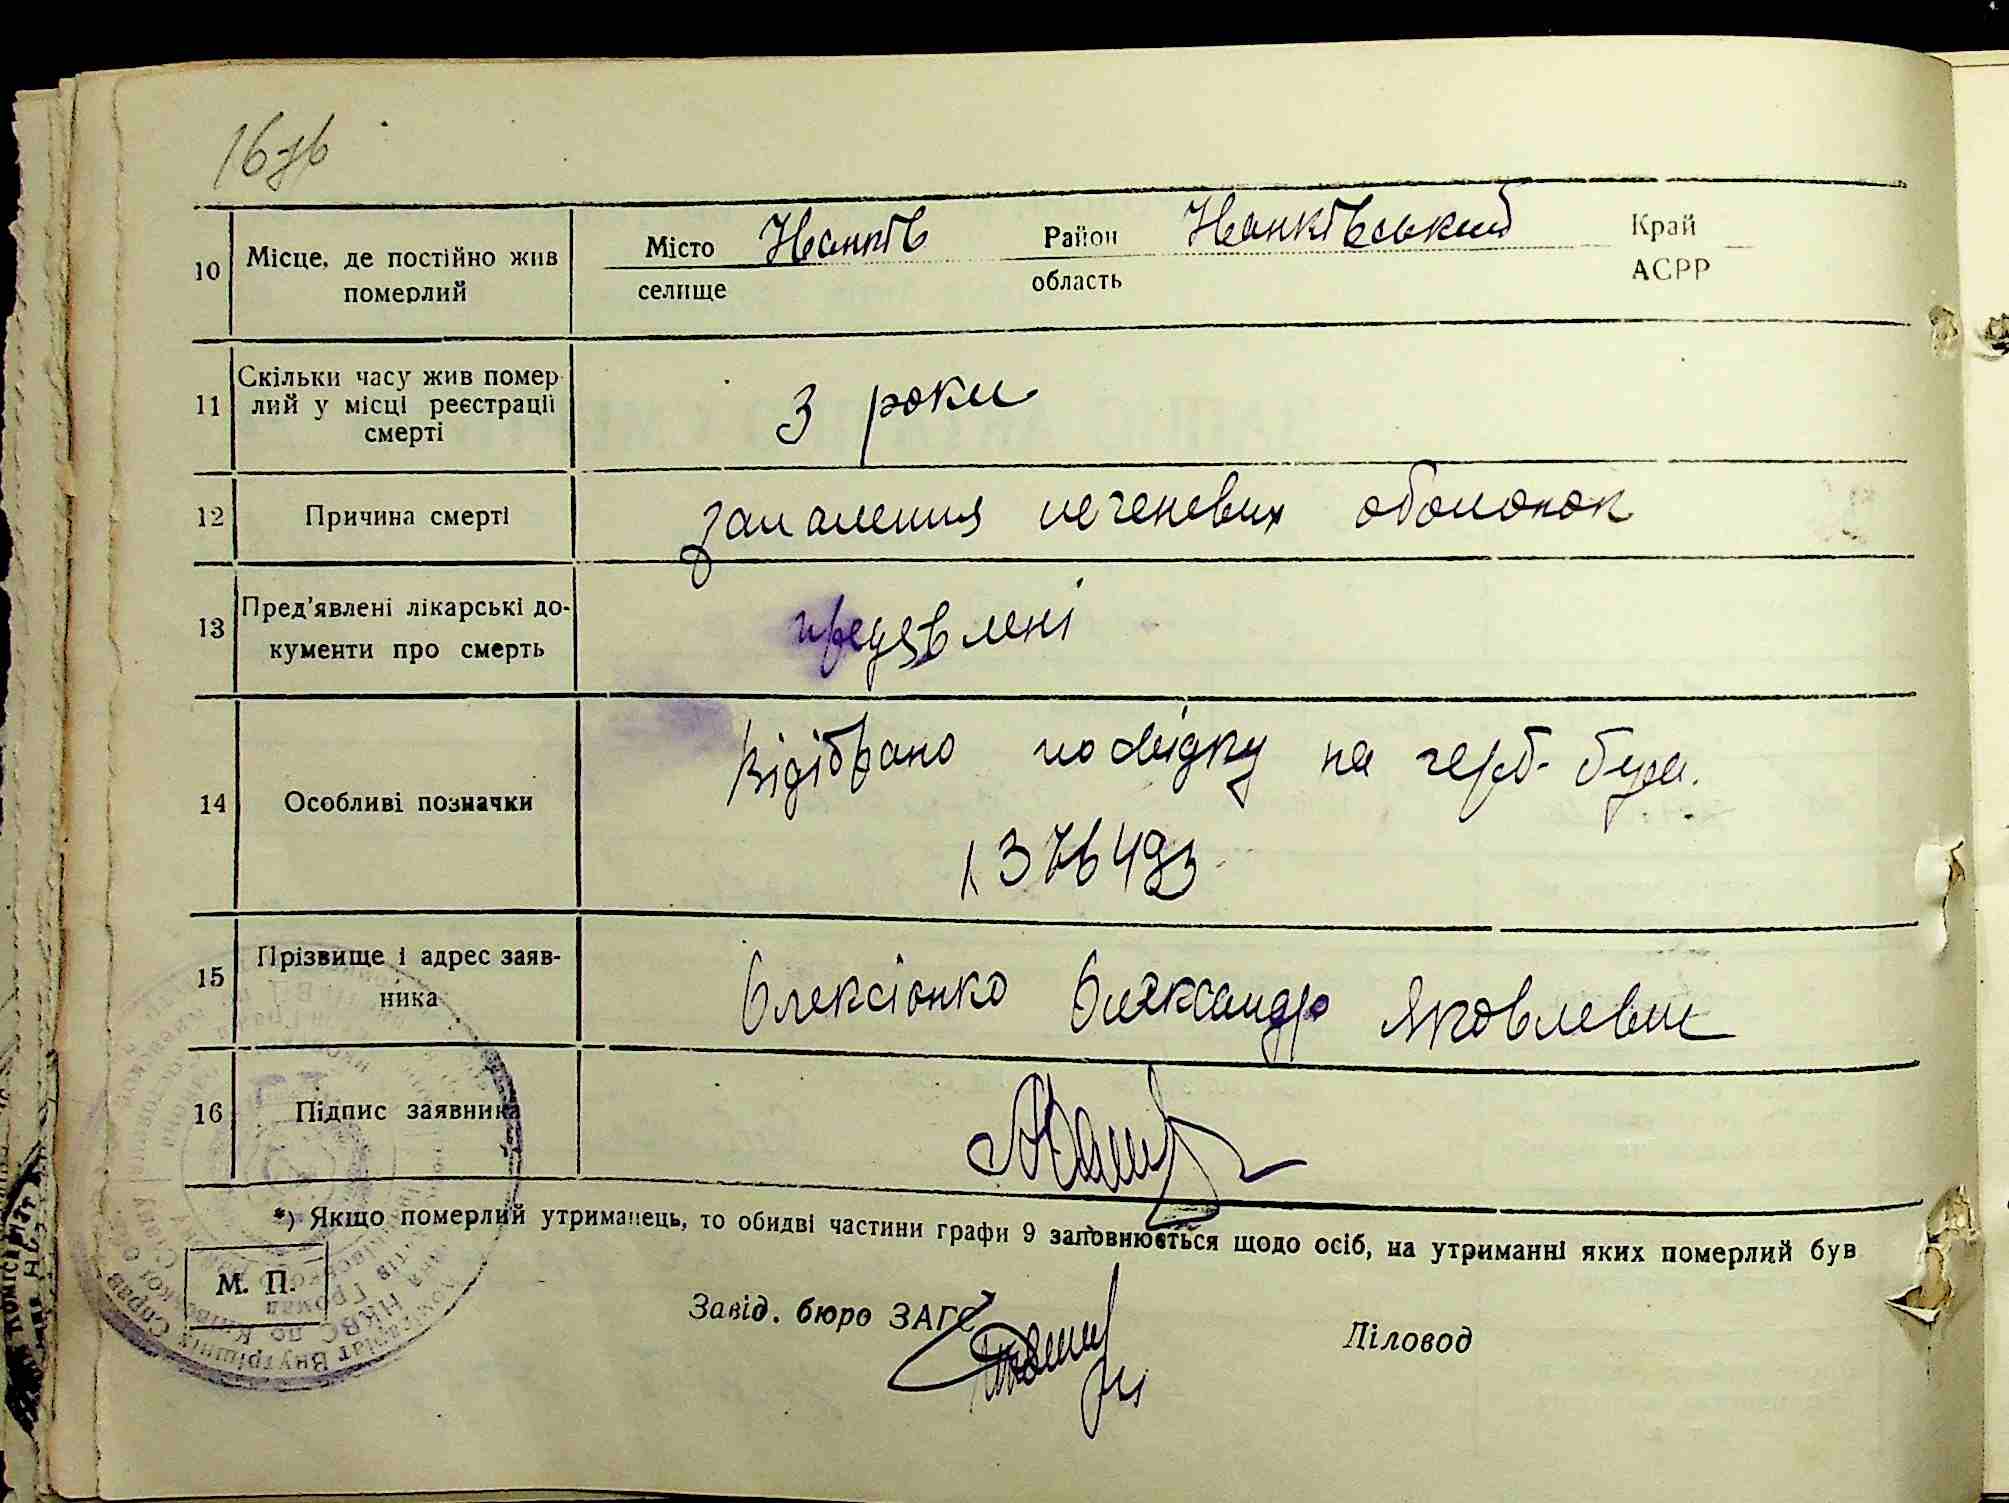 16 зв
10 Місце, де постійно жив померлий Місто Іванків Район Іванківський Край
селище область АСРР
11 Скільки часу жив помер-
лий у місці реєстрації
смерті
3 роки
12 Причина смерті запалення печеневих оболонок
13 Пред'явлені лікарські до-
кументи про смерть
предявлені
14 Особливі позначки Відібрано посвідку на герб. бум.
15 Прізвище і адрес заяв-
ника
Олексіонко Олександр Яковлевич
16 Підпис заявника
*) Якщо померлий утриманець, то обидві частини графи 9 заповнюється щодо осіб, на утриманні яких померлий був
М. П.
Завід. бюро ЗАГС Діловод